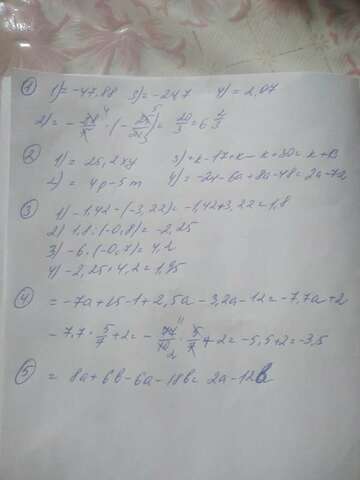 ① 1) = -47,88 3) = -24,7 4) = 2,07
2) = - 28/7 · (- 25/21) = 20/3 = 6 2/3
② 1) = 25,2xy 3) + k - 17 + k - k + 30 = k + 13
2) = 4p - 5m 4) = -2a - 6a + 8a - 48 = 2a - 72
③ 1) -1,42 - (-3,22) = -1,42 + 3,22 = 1,8
2) 1,8 : (-0,8) = -2,25
3) -6 · (-0,7) = 4,2
4) -2,25 + 4,2 = 1,95
④ = -7a + 15 - 1 + 2,5a - 3,2a - 12 = -7,7a + 2
-7,7 · 5/7 + 2 = - 77/10 · 5/7 + 2 = -5,5 + 2 = -3,5
⑤ = 8a + 6b - 6a - 18b = 2a - 12b